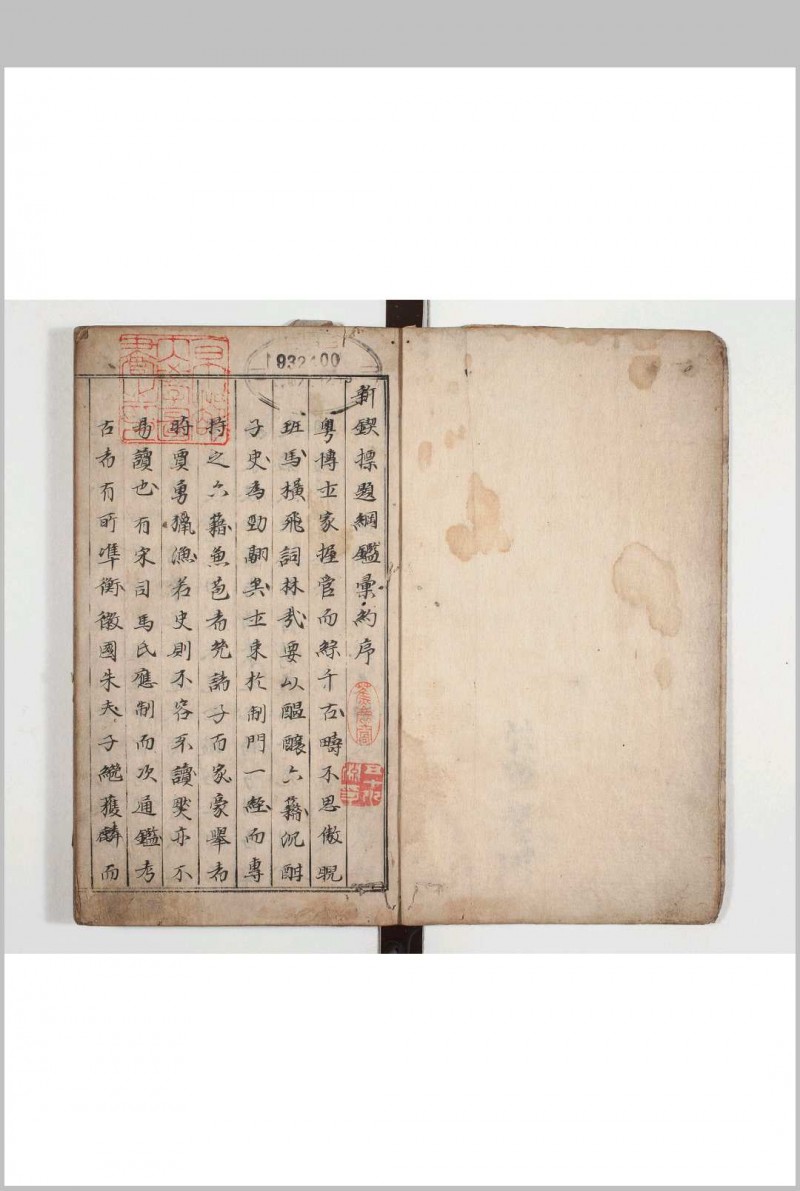 新鍥標題綱鑑彙約序
粵博士家握管而綜千古疇不思傲睨
班馬橫飛詞林哉要以醞釀六籍沉酣
子史為勁翮矣士束於制門一經而專
持之六籍魚苞者先諸子而家豪舉者
時賈勇獵漁若史則不容不讀矣亦不
易讀也有宋司馬氏應制而次通鑑考
古者有所準衡徽國朱夫子纘獲麟而
932400